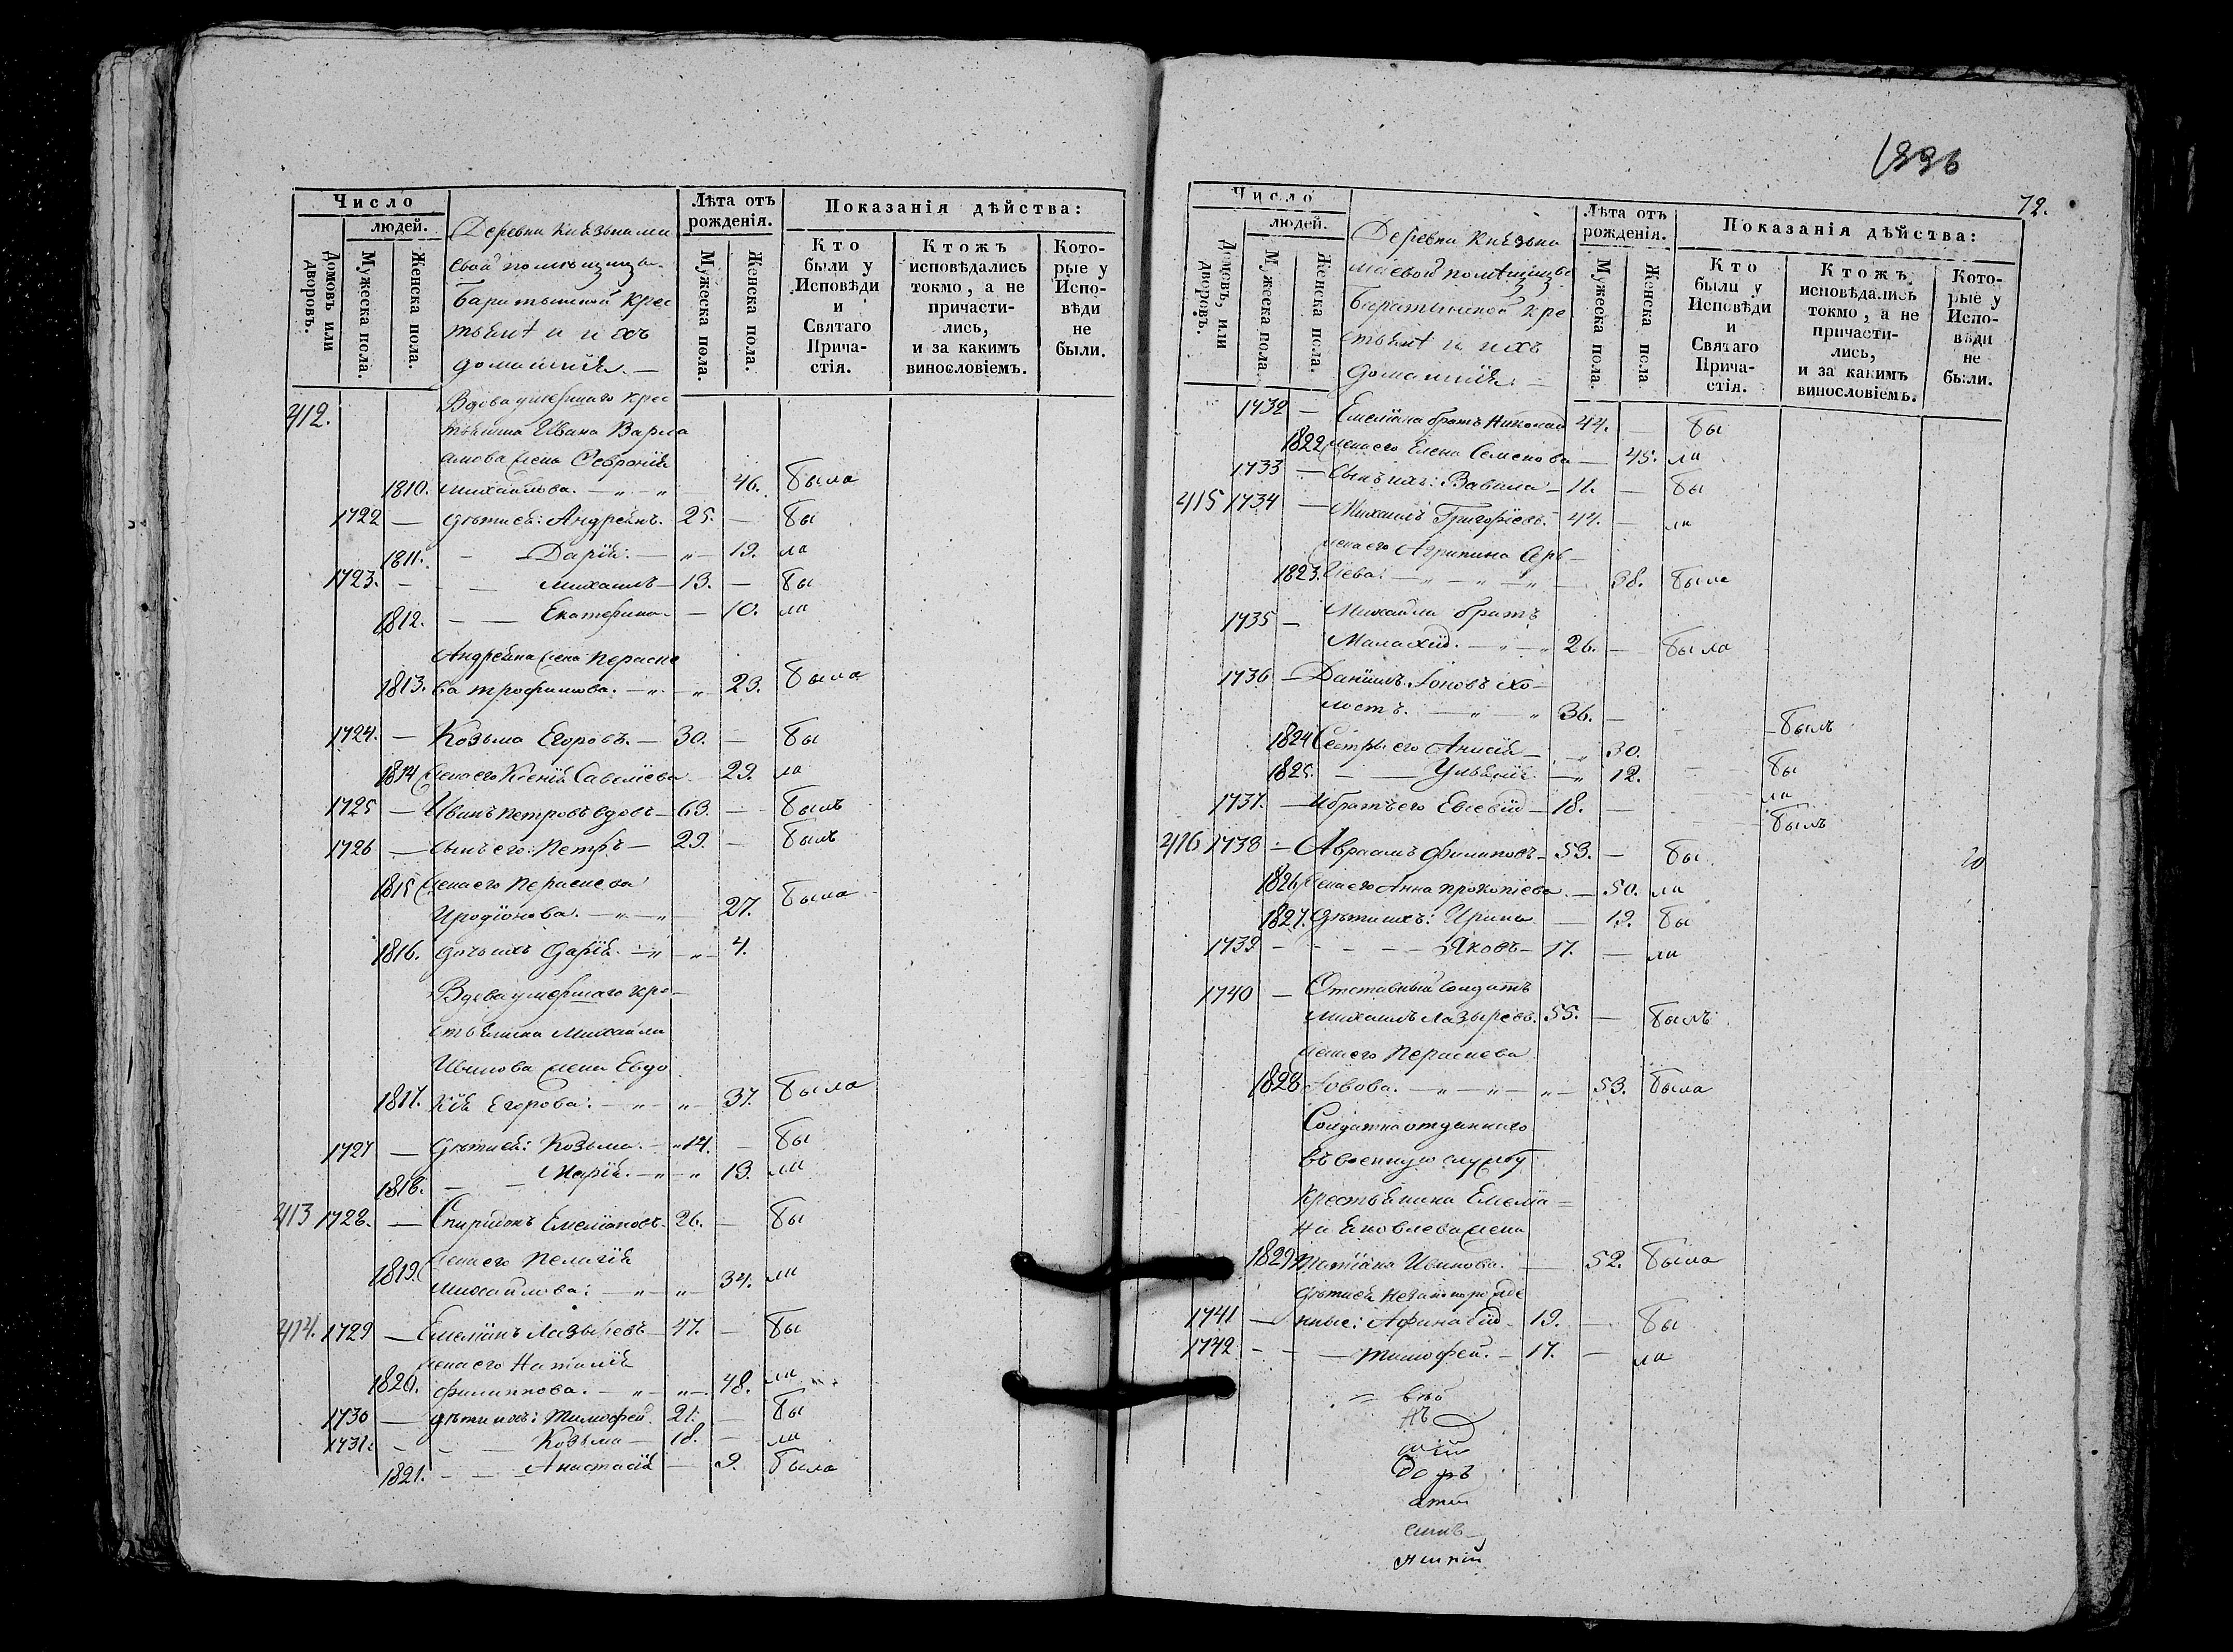 Число
людей.
Домовъ или дворовъ.
Мужеска пола.
Женска пола.
Деревни Князьнама
евой помѣщицы
Баратынской крес
тьянѣ и ихъ
домашнія. —
Лѣта отъ рожденія.
Мужеска пола.
Женска пола.
Показанія дѣйства:
Кто были у Исповѣди и Святаго Причастія.
Ктожъ исповѣдались токмо, а не причастились, и за какимъ винословіемъ.
Которые у Исповѣди не были.
412. Вдова умершаго крес
тьянина Ивана Варла
амова жена Февронія
1810. Михайлова. — 46. была
1722 — дѣти ея: Андрей 25. — бы
1811. — Дарія. — 19. ла
1723. — Михаилъ — 13. — бы
1812. — Екатерина — 10. ла
Андрея жена Параске
1813. ва Трофимова. — 23. была
1724. — Козьма Егоровъ. — 30. — бы
1814 жена его Ксенія Савелiева — 29. ла
1725 — Иванъ Петровъ вдовъ — 63. — былъ
1726 — сынъ его: Петръ — 29. — былъ
1815 жена его Параскева
Иродіонова. — 27. была
1816. дочь ихъ Дарія. — 4.
Вдова умершаго кре-
стьянина Михаила
Иванова жена Евдо
1817. кія Егорова. — 37. была
1727 — дѣти ея: Козьма. — 14. — бы
1818. — Марія. — 13. ли
413 1728. — Спиридонъ Емеліановъ. 26. — бы
жена его Пелагія
1819. Михайлова: — 34. ли
414. 1729 — Емеліанъ Лазыревъ — 47. — бы
жена его Наталія
1820. Филиппова. — 48. ли
1730 — дѣти ихъ: Тимофей. 21. — бы
1731. — Козьма — 18. — ли
1821. — Анастасія — 9. была
1996
72.
Число
людей.
Домовъ, или дворовъ.
Мужеска пола.
Женска пола.
Деревни Князьна
маевой помѣщицы
Баратынской кре
стьянѣ и ихъ
домашнія: —
Лѣта отъ рожденія.
Мужеска пола.
Женска пола.
Показанія дѣйства:
Кто были у Исповѣди и Святаго Причастія.
Ктожъ исповѣдались токмо, а не причастились, и за какимъ винословіемъ.
Которые у Исповѣди не были.
1732 — Емеліана братъ Николай 44. — бы
1822 жена его Елена Семенова — 45. ли
1733 — сынъ ихъ: Вавила — 11. — бы
415 1734 — Михаилъ Григорьевъ. 44. — ли
жена его Агрипина Сер-
1823. — 38. была
1735 — Михаила братъ
Малахій. — 26. — была
1736 — Даніилъ Іоновъ хо-
лостъ. — 36. — былъ
1824 сестры его Анисія — 30.
1825. — Ульянія — 12. бы
ли
1737. — и братъ его Евсевій — 18. — былъ
416 1738 — Авраамъ Филиповъ — 53. — бы
1826 жена его Анна Прокопіева. — 50. ли
1827. дѣти ихъ: Ирина — 19. бы
1739 — Яковъ — 17. — ли
1740 — Отставный солдатъ
Михаилъ Лазыревъ. 55. — былъ
жена его Параскева
1828 Іовова. — 53. была
Солдатка отданнаго
въ военную службу
крестьянина Емелiа-
на Яковлева жена
1829 Татіана Иванова. — 52. была
дѣти ея незаконорожде
1741 — нные: Афанасій — 19. — бы
1742 — Тимофей. — 17. — ли